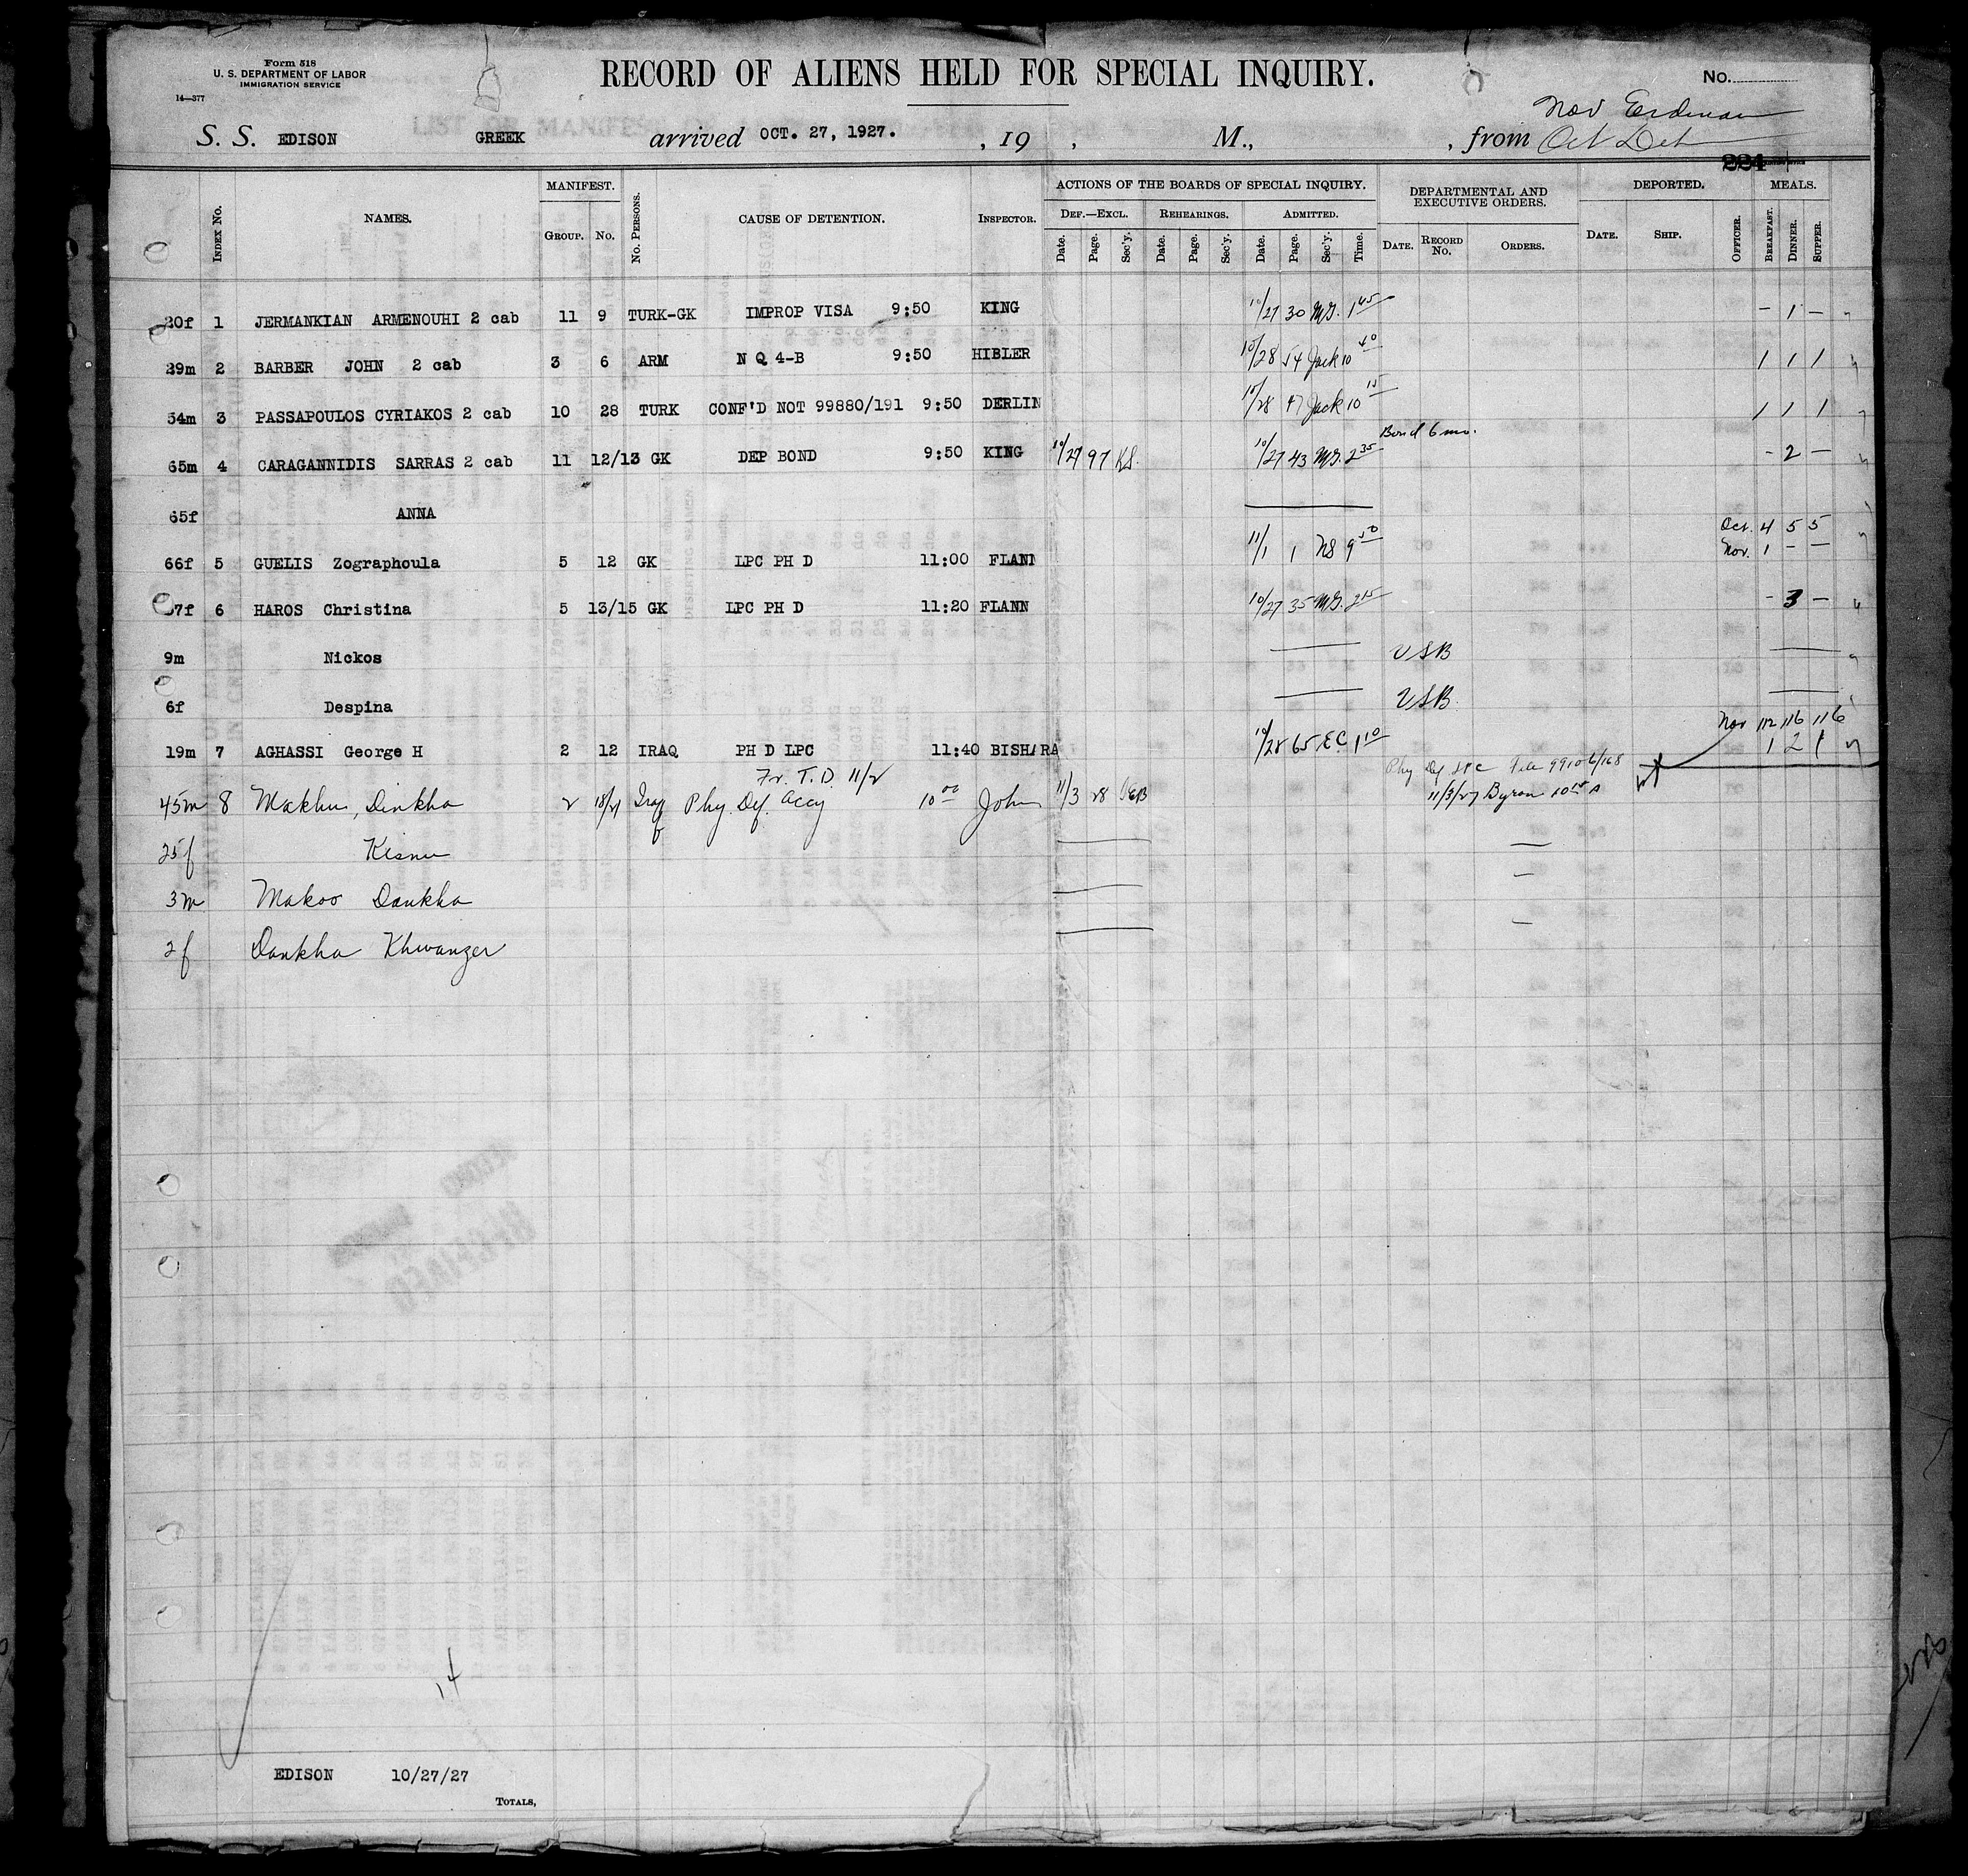 Form 518
U. S. DEPARTMENT OF LABOR
IMMIGRATION SERVICE
14—377
RECORD OF ALIENS HELD FOR SPECIAL INQUIRY.
No.
Nov Erdman
S. S. EDISON GREEK arrived OCT. 27, 1927. , 19 , M., , from Oct Det
224
INDEX NO. NAMES. MANIFEST. GROUP. NO. NO. PERSONS. CAUSE OF DETENTION. INSPECTOR. ACTIONS OF THE BOARDS OF SPECIAL INQUIRY. DEF.—EXCL. Date. Page. Sec'y. REHEARINGS. Date. Page. Sec'y. ADMITTED. Date. Page. Sec'y. Time. DEPARTMENTAL AND EXECUTIVE ORDERS. DATE. RECORD NO. ORDERS. DEPORTED. DATE. SHIP. OFFICER. MEALS. BREAKFAST. DINNER. SUPPER.
20f 1 JERMANKIAN ARMENOUHI 2 cab 11 9 TURK-GK IMPROP VISA 9:50 KING 10/27 30 MG. 1 45 – 1 –
29m 2 BARBER JOHN 2 cab 3 6 ARM N Q 4-B 9:50 HIBLER 10/28 54 Jack 10 40 1 1 1
54m 3 PASSAPOULOS CYRIAKOS 2 cab 10 28 TURK CONF'D NOT 99880/191 9:50 DERLIN 10/28 47 Jack 10 15 1 1 1
Bond 6 mo.
65m 4 CARAGANNIDIS SARRAS 2 cab 11 12/13 GK DEP BOND 9:50 KING 10/27 97 KS. 10/27 43 MG. 2 35 – 2 –
65f ANNA
Oct. 4 5 5
66f 5 GUELIS Zographoula 5 12 GK LPC PH D 11:00 FLANN 11/1 1 NS 9 50 Nov. 1 – –
37f 6 HAROS Christina 5 13/15 GK LPC PH D 11:20 FLANN 10/27 35 MG. 2 15 – 3 –
9m Nickos USB
6f Despina USB
Nov 112 116 116
19m 7 AGHASSI George H 2 12 IRAQ PH D LPC 11:40 BISHARA 10/28 65 EC 1 10 1 2 1
Fr. T.D. 11/2 Phy Def LPC File 99106/168
45m 8 Makhu, Dinkha 2 18/21 Iraq Phy. Def. Accy 10 00 John 11/3 28 11/3/27 Byron 10 15 A
25f Kisnu
3m Makoo Dankha
2f Dankha Khwanzer
14
EDISON 10/27/27
TOTALS,